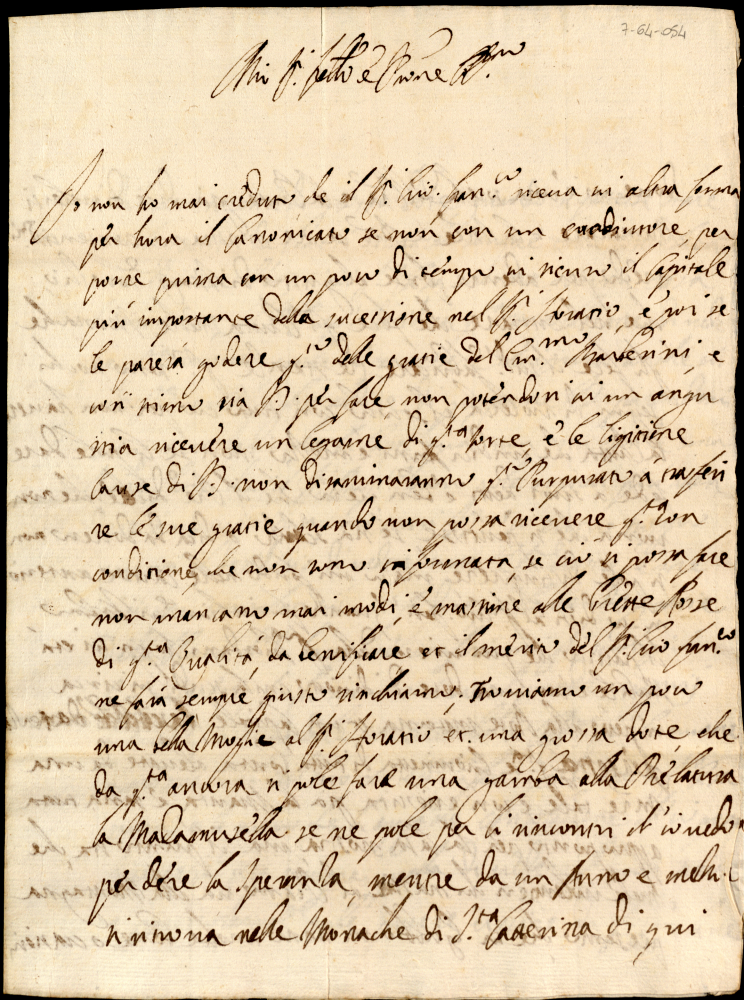 7-64-054
Mio Sr. frello e Prone
Io non ho mai creduto, che il Sr. Cav. Fran.co riceva in altra forma
per hora il Canonicato se non con un coadiutore, per
porre prima con un poco di tempo in sicuro il Capitale
più importante della sucessione nel Sr. Horatio, e poi se
le parerà godere q.to delle gratie del Em.mo Barberini, e
così stimo sia B. per fare non potendosi in un angu
stia ricevere un legame di q.ta sorte, e le ligitime
cause di B. non disaminaranno q.to Purpurato à trasferi
re le sue gratie quando non possa ricevere q.ta con
conditione, che non sono, se ciò si possa fare
non mancano mai modi, e massime alle Teste Rosse
di q.ta Qualità, da benificare, et il merito del Sr. Cav. Fran.co
ne farà sempre giusto richiamo; Troviamo un poco
una bella Moglie al Sr. Horatio et una grossa dote, che
da q.ta ancora si pole fare una gamba alla Prelatura
la Madamusella se ne pole per li rincontri ch'io vedo
perdere la speranza, mentre da un e
si ritrova nelle Monache di S.ta Catterina di qui